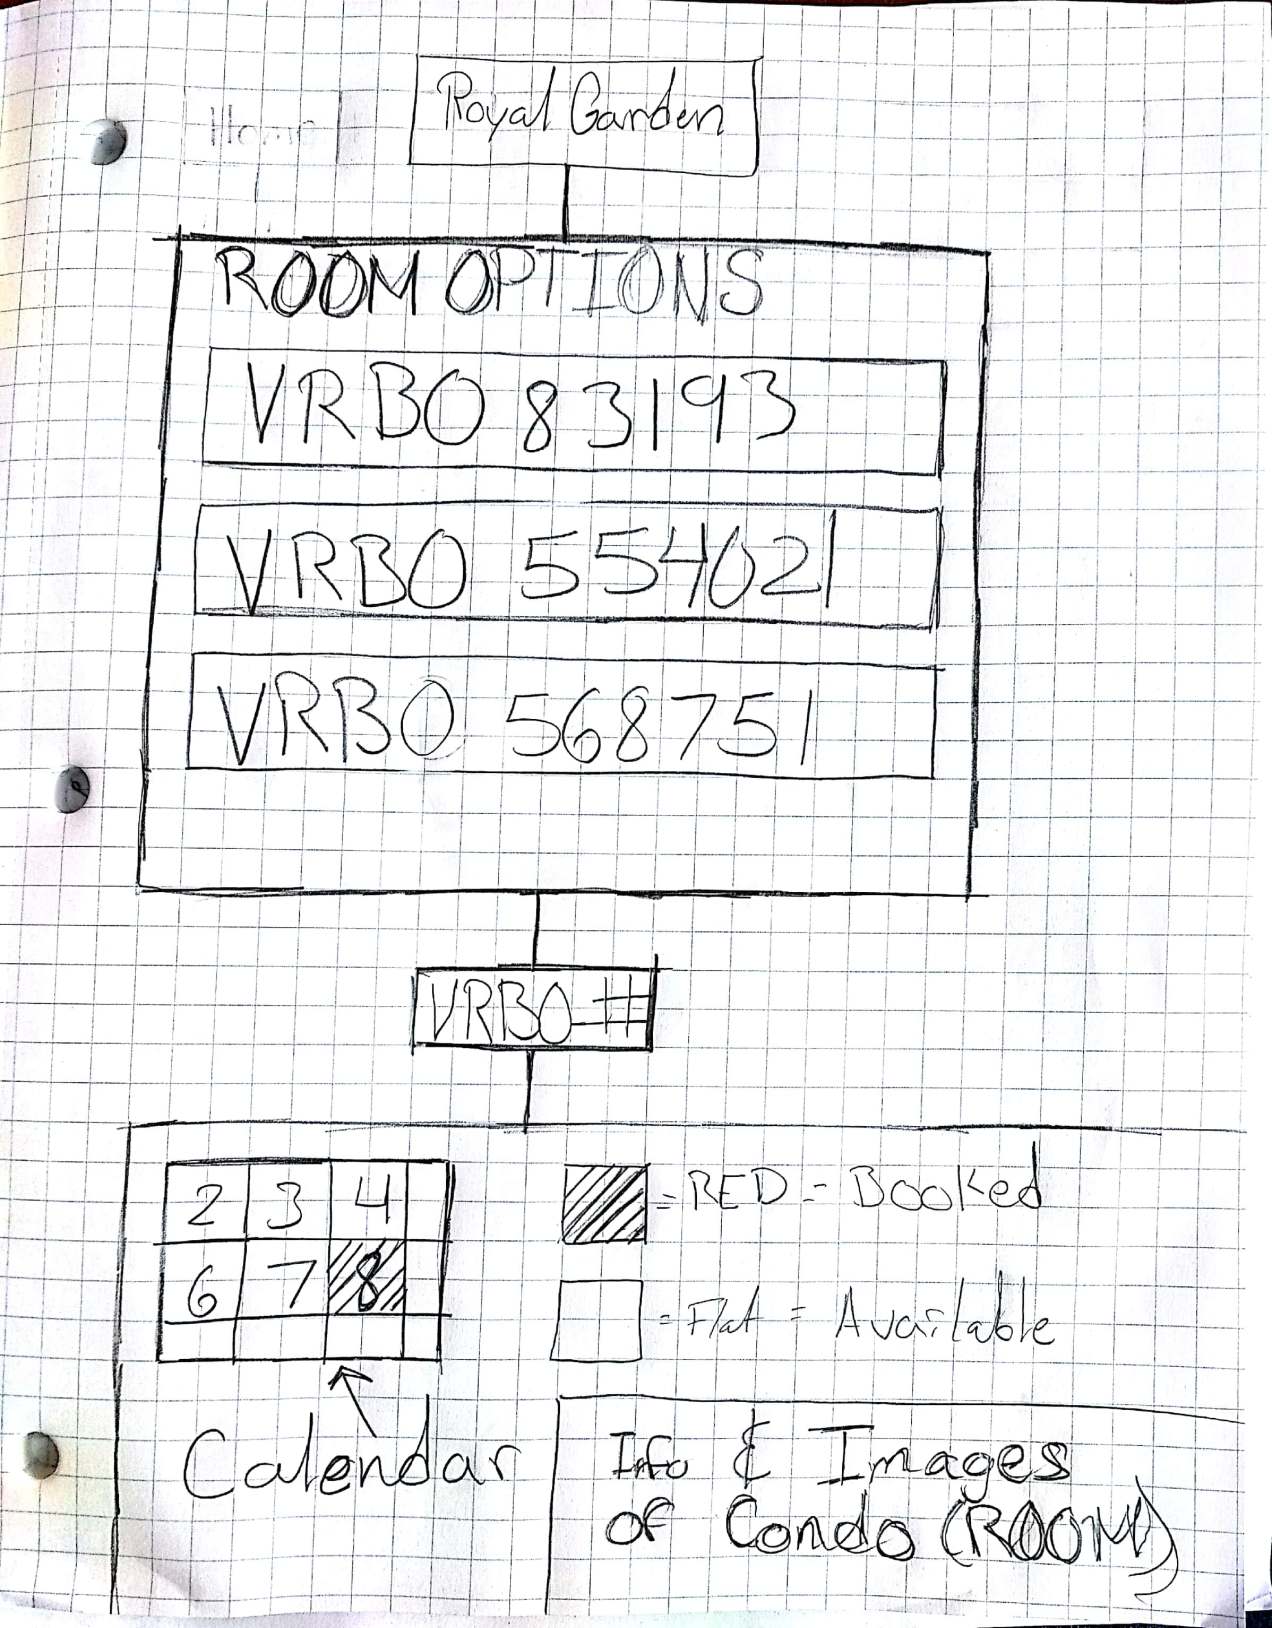 Home
Royal Garden
ROOM OPTIONS
VRBO 83193
VRBO 554021
VRBO 568751
VRBO #
2 3 4
6 7 8
= RED = Booked
= Flat = Available
Calendar
Info & Images
of Condo (ROOM)